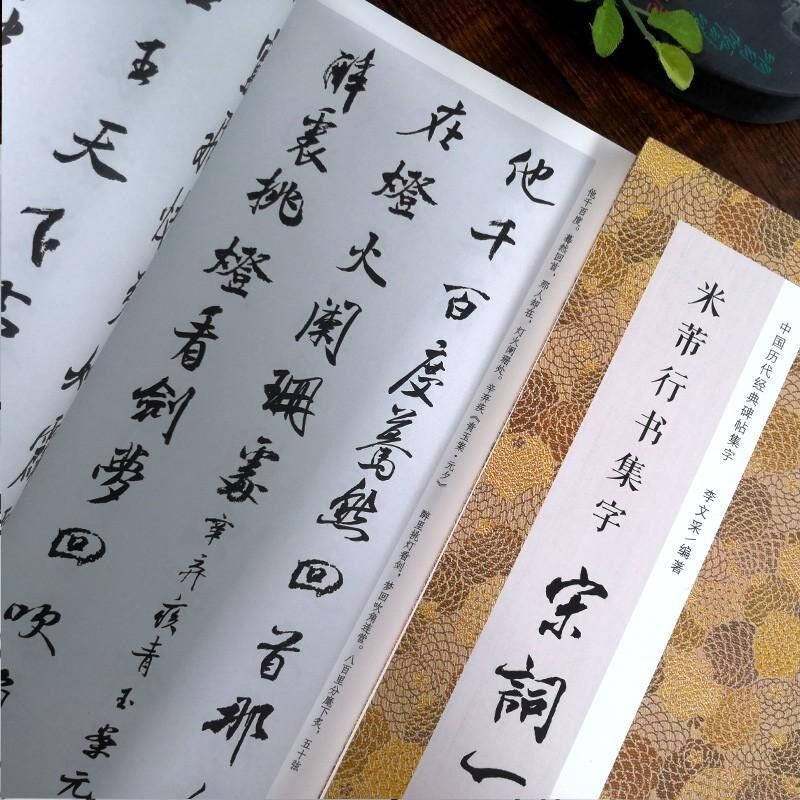 中国历代经典碑帖集字
李文采/编著
米芾行书集字
宋詞
他千百度。蓦然回首，那人却在，灯火阑珊处。辛弃疾《青玉案·元夕》
醉里挑灯看剑，梦回吹角连营。八百里分麾下炙，五十弦
他千百度驀然回首那
在燈火闌珊處辛弃疾青玉案元
醉裏挑燈看劍夢回吹
王天下